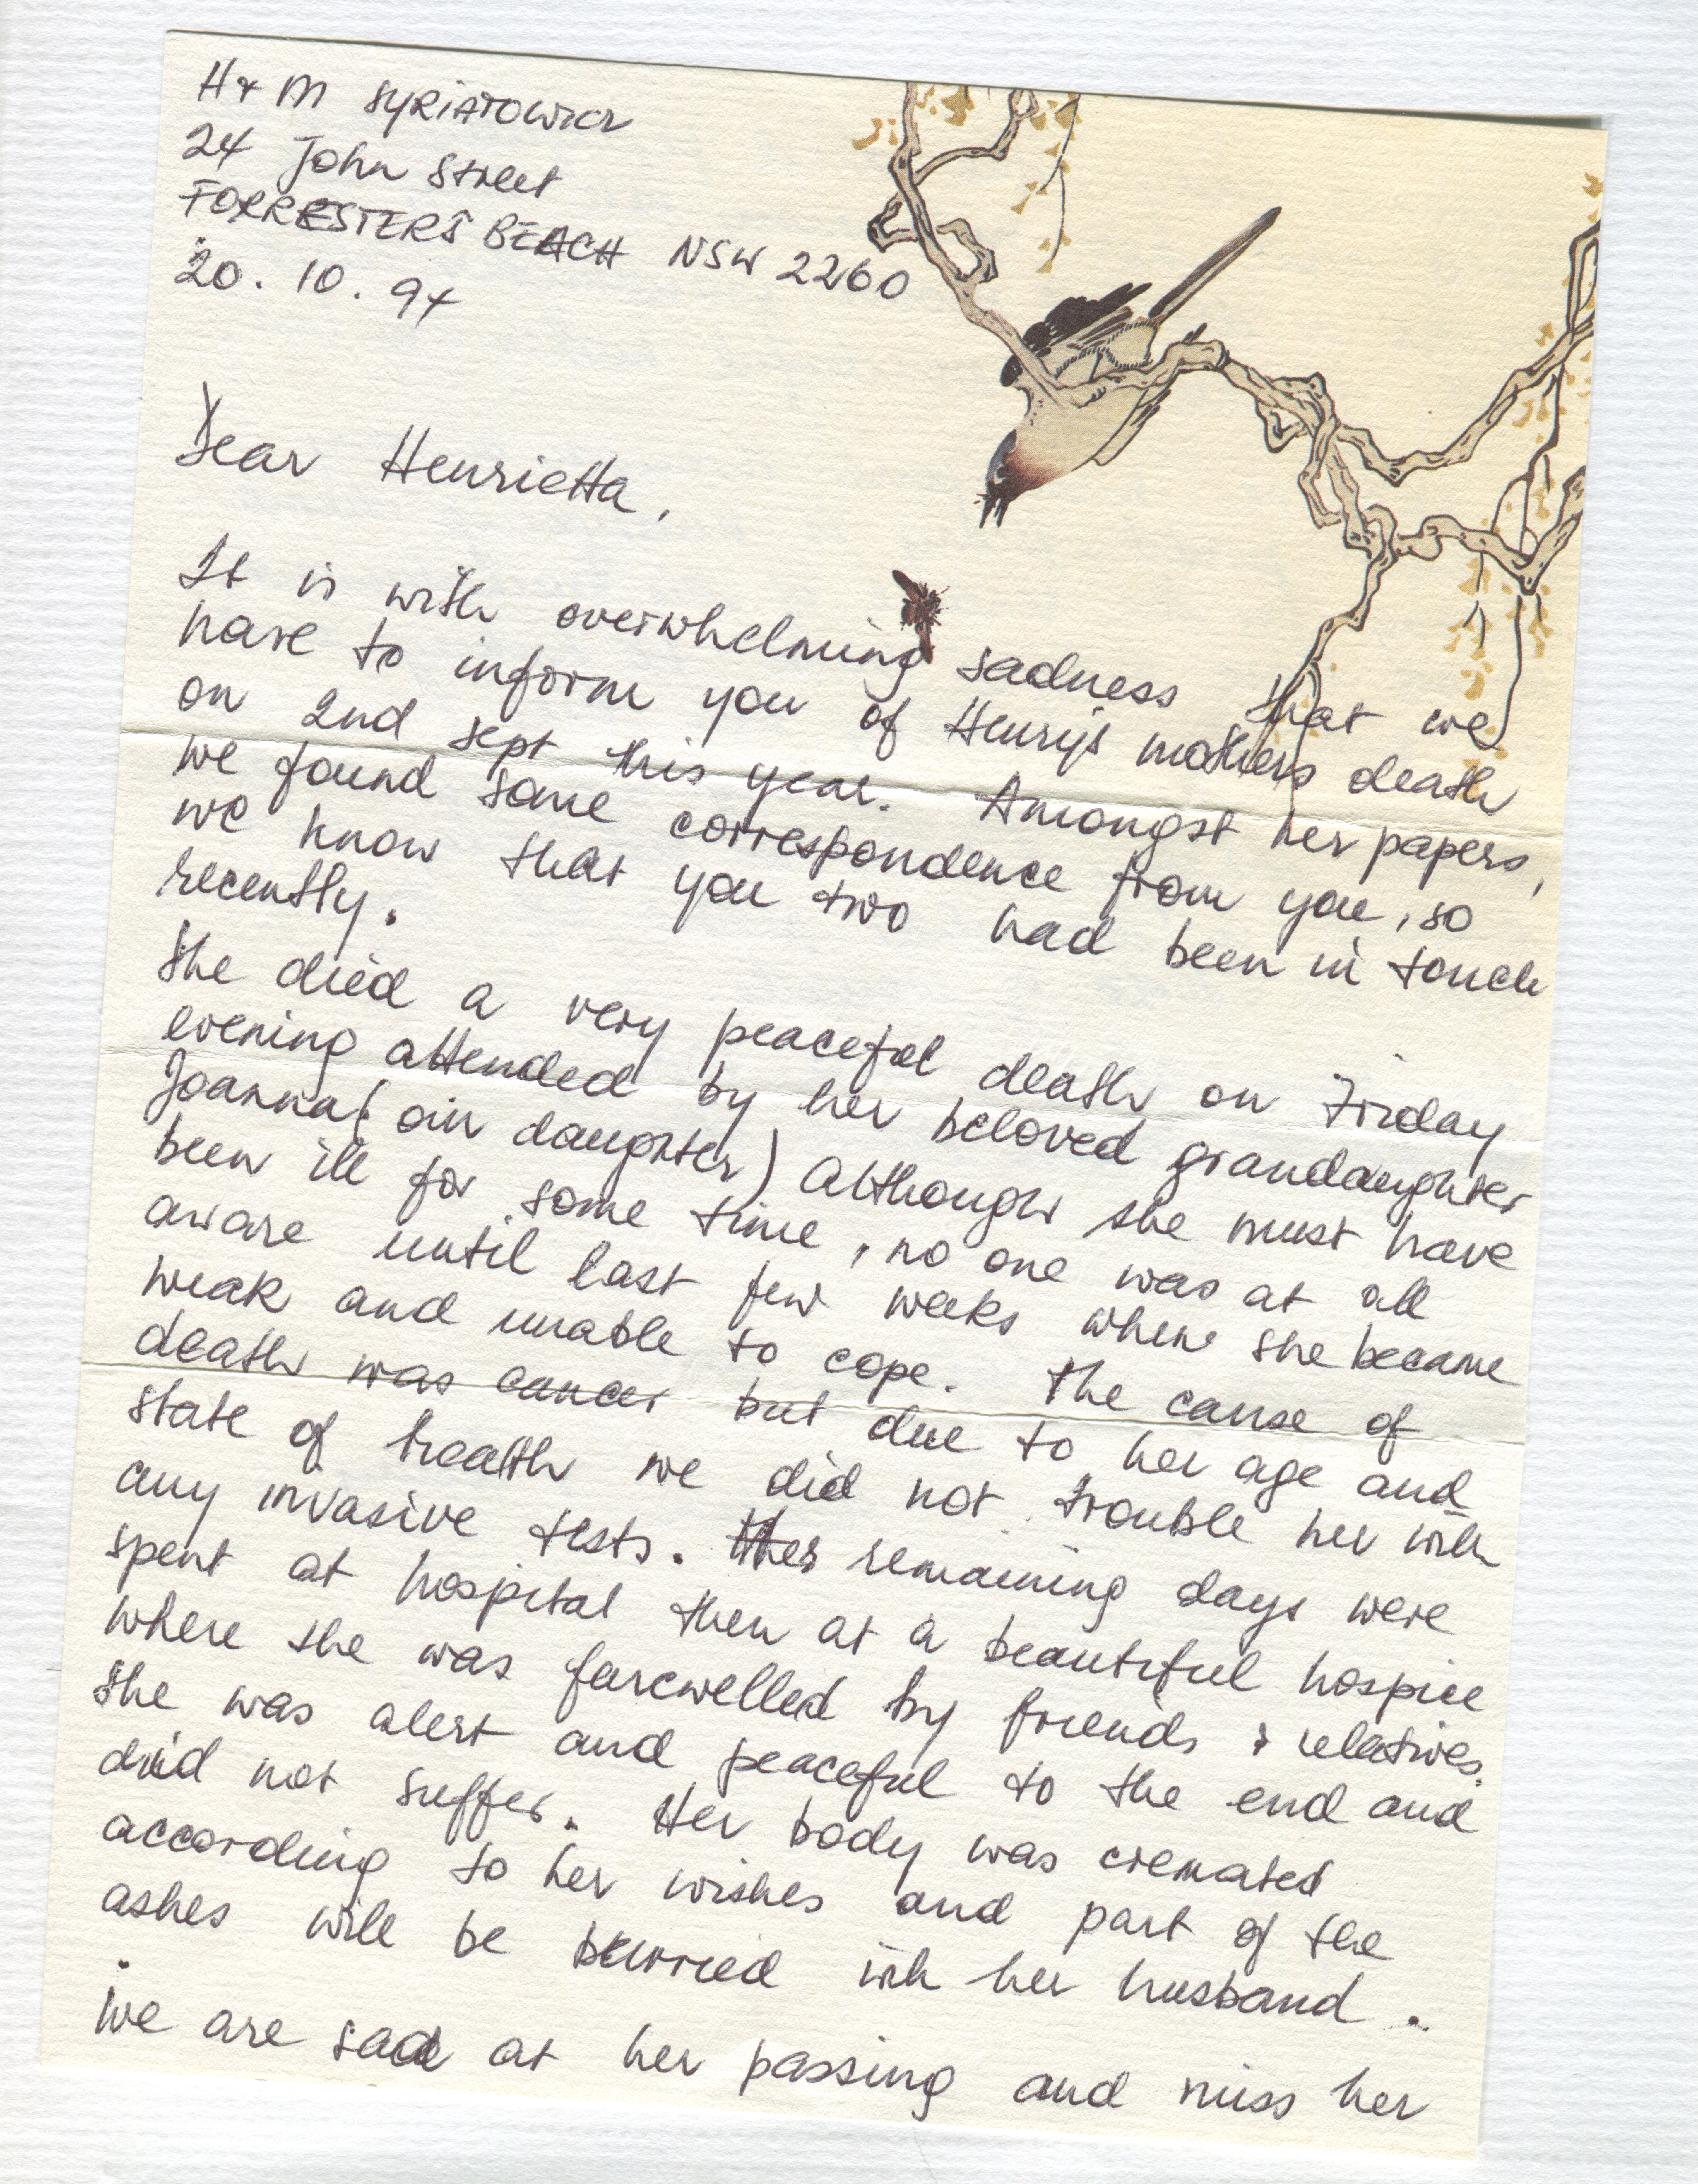 H & M SYRIATOWICZ
24 John Street
FORRESTERS BEACH NSW 2260
20. 10. 94
Dear Henrietta,
It is with overwhelming sadness that we
have to inform you of Henry's mothers death
on 2nd sept this year. Amongst her papers,
we found some correspondence from you, so
we know that you two had been in touch
recently.
She died a very peaceful death on Friday
evening attended by her beloved grandaughter
Joanna (our daughter) Although she must have
been ill for some time, no one was at all
aware until last few weeks when she became
weak and unable to cope. The cause of
death was cancer but due to her age and
state of health we did not trouble her with
any invasive tests. Her remaining days were
spent at hospital then at a beautiful hospice
where she was farewelled by friends & relatives.
She was alert and peaceful to the end and
did not suffer. Her body was cremated
according to her wishes and part of the
ashes will be burried with her husband.
We are sad at her passing and miss her